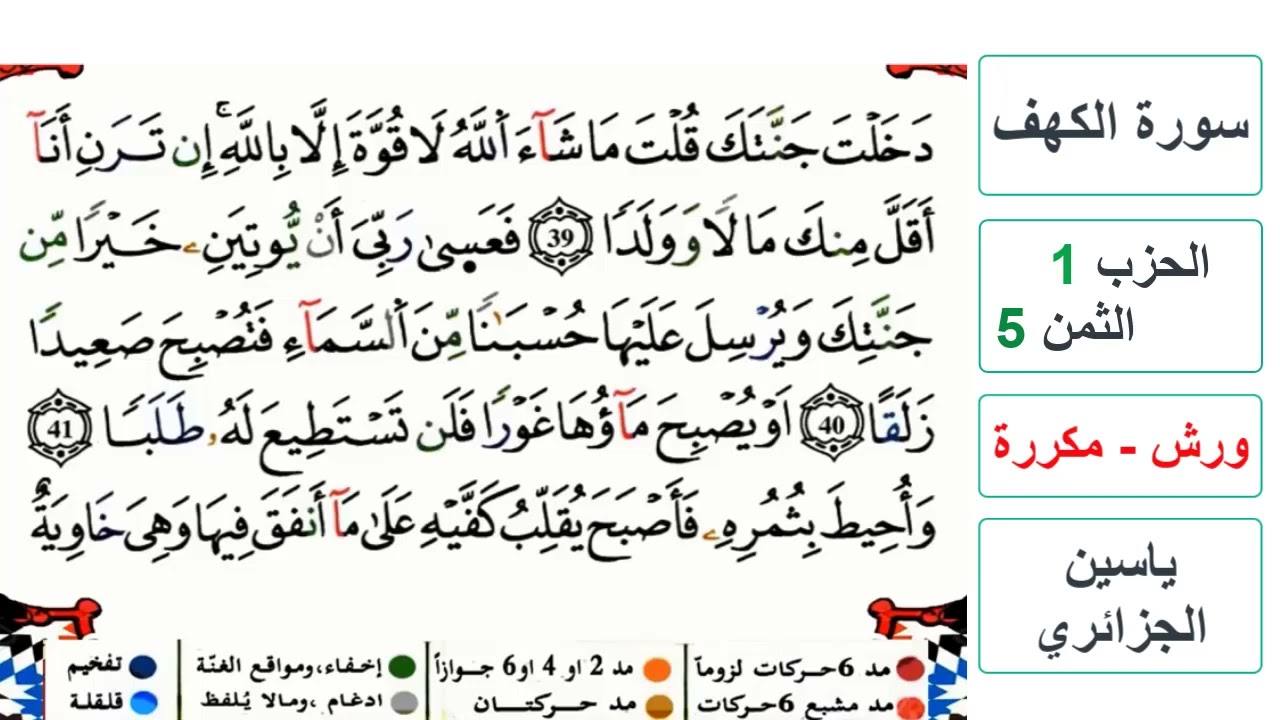 دَخَلْتَ جَنَّتَكَ قُلْتَ مَا شَآءَ اَ۬للَّهُ لَا قُوَّةَ إِلَّا بِاللَّهِۚ إِن تَرَنِ أَنَآ
أَقَلَّ مِنكَ مَالًا وَوَلَدًا 39 فَعَسۭىٰ رَبِّىَ أَنْ يُّوتِيَنِۦ خَيْرًا مِّن
جَنَّتِكَ وَيُرْسِلَ عَلَيْهَا حُسْبَٰنًا مِّنَ اَ۬لسَّمَآءِ فَتُصْبِحَ صَعِيدًا
زَلَقًا 40 اَوْ يُصْبِحَ مَآؤُهَا غَوْرًا فَلَن تَسْتَطِيعَ لَهُۥ طَلَبًا 41
وَأُحِيطَ بِثُمُرِهِۦ فَأَصْبَحَ يُقَلِّبُ كَفَّيْهِ عَلَىٰ مَآ أَنفَقَ فِيهَا وَهِىَ خَاوِيَةٌ
مد 6 حركات لزوماً
مد 2 او 4 او 6 جوازاً
إخفاء، ومواقع الغنّة
تفخيم
مد مشبع 6 حركات
مد حركتان
ادغام، ومالا يُلفظ
قلقلة
سورة الكهف
الحزب 1
الثمن 5
ورش - مكررة
ياسين
الجزائري